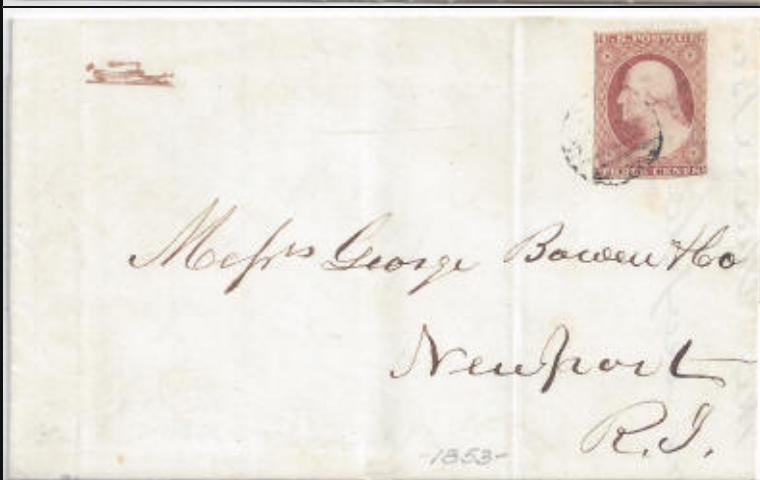 U.S. POSTAGE
THREE CENTS
Messrs George Bowen & Co
Newport
R.I.
-1853-